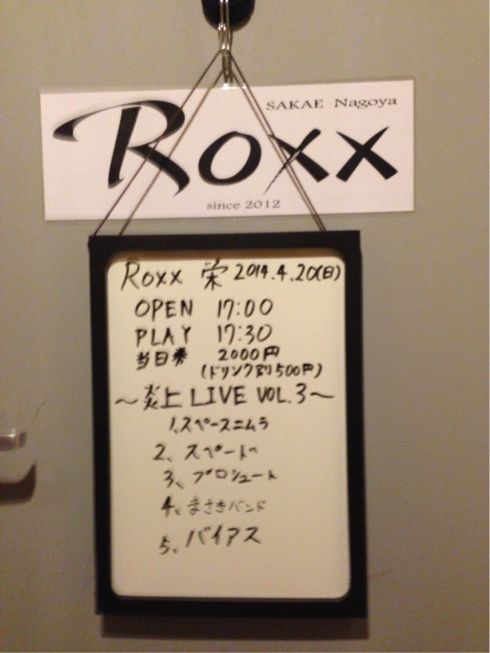 SAKAE Nagoya
Roxx
since 2012
Roxx 栄 2014.4.20(日)
OPEN 17:00
PLAY 17:30
当日券 2000円
(ドリンク別500円)
～炎上LIVE VOL.3～
1.スペースニムラ
2、スペート
3、プロシュート
4、まさきバンド
5、バイアス